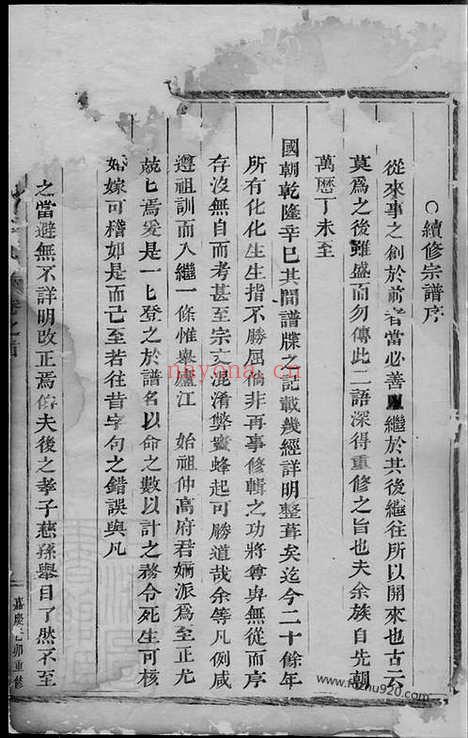 ○續修宗譜序
從來事之創於前者當必善繼於其後繼往所以開來也古云
莫爲之後雖盛而勿傳此二語深得重修之旨也夫余族自先朝
萬曆丁未至
國朝乾隆辛巳其間譜牒之記載幾經詳明整葺矣迄今二十餘年
所有化化生生指不勝屈倘非再事修輯之功將尊卑無從而序
存沒無自而考甚至宗支混淆弊竇蜂起可勝道哉余等凡例咸
遵祖訓而入繼一條惟舉廬江 始祖仲高府君嫡派爲至正尤
兢匕焉爰是一匕登之於譜名以命之數以計之務令死生可核
始嫁可稽如是而已至若往昔字句之錯誤與凡
之當避無不詳明改正焉俾夫後之孝子慈孫舉目了然不至
卷之首
嘉慶己卯重修
nayona.cn
www.fozhu920.com